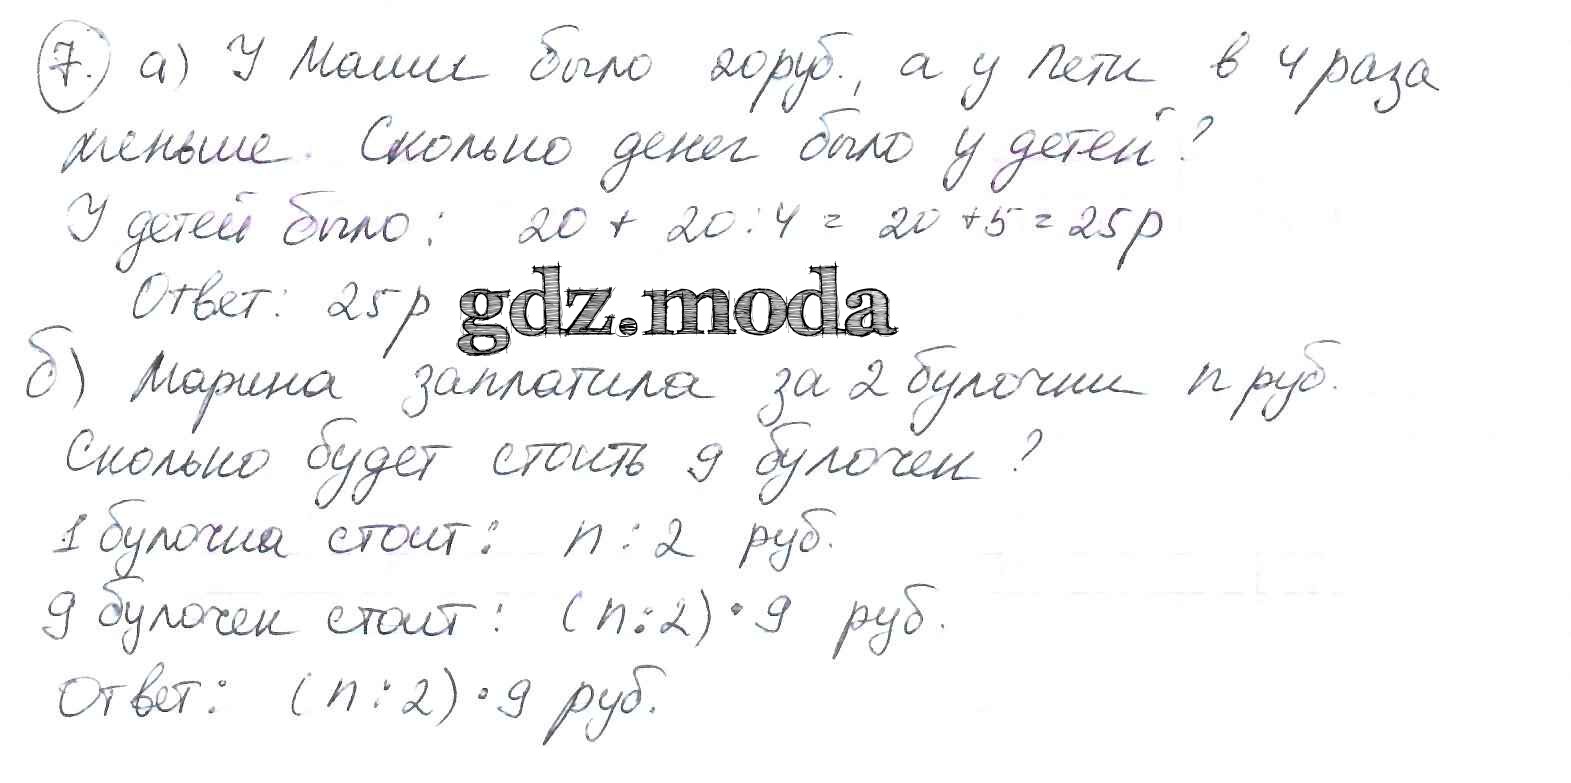 7. а) У Маши было 20 руб., а у Пети в 4 раза
меньше. Сколько денег было у детей?
У детей было: 20 + 20 : 4 = 20 + 5 = 25 р
Ответ: 25 р
gdz.moda
б) Марина заплатила за 2 булочки n руб.
Сколько будет стоить 9 булочек?
1 булочка стоит: n : 2 руб.
9 булочек стоит: (n : 2) • 9 руб.
Ответ: (n : 2) • 9 руб.